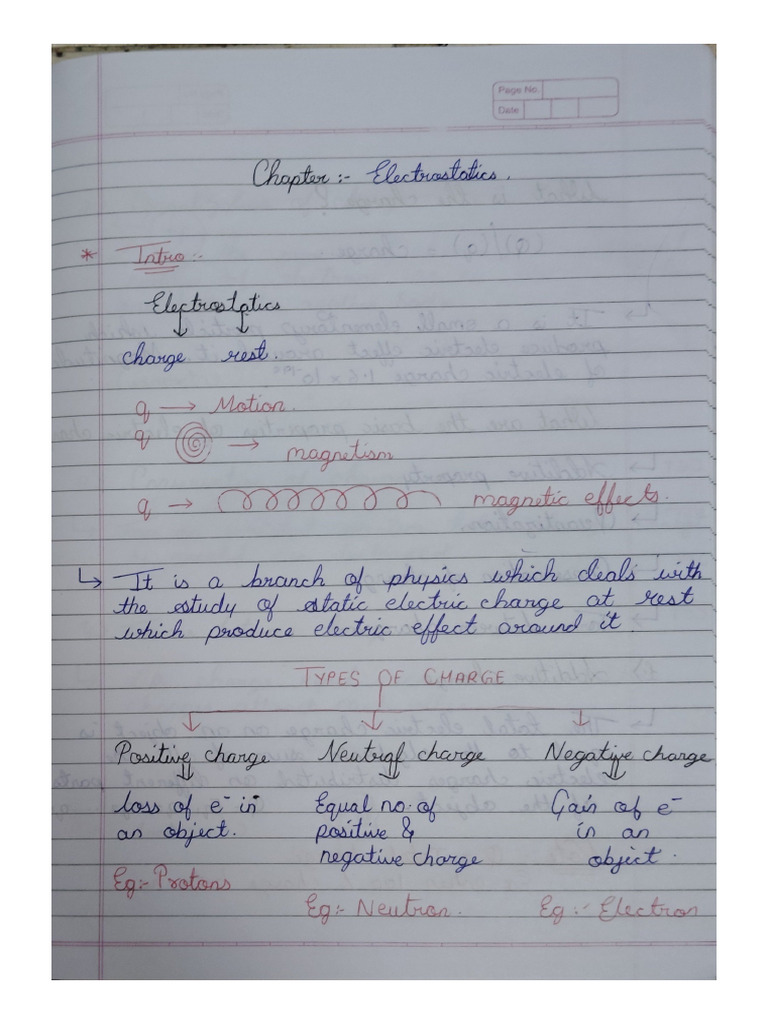 Page No.
Date
Chapter :- Electrostatics.
* Intro :-
Electrostatics
↓ ↓
charge rest.
q → Motion.
q → magnetism
q → magnetic effects.
↳ It is a branch of physics which deals with
the study of static electric charge at rest
which produce electric effect around it.
TYPES OF CHARGE
Positive charge Neutral charge Negative charge
loss of e⁻ in Equal no. of Gain of e⁻
an object. positive & in an
negative charge object.
Eg:- Protons
Eg:- Neutron. Eg:- Electron